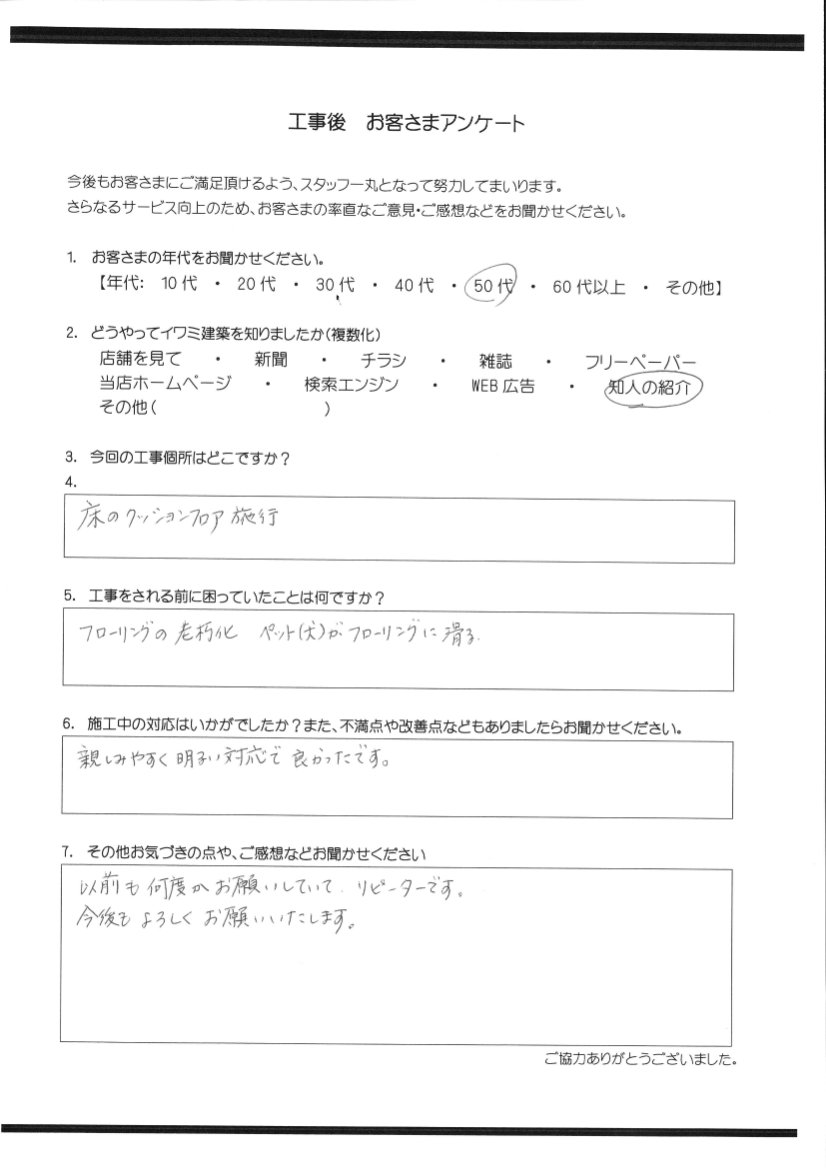 工事後　お客さまアンケート
今後もお客さまにご満足頂けるよう、スタッフ一丸となって努力してまいります。
さらなるサービス向上のため、お客さまの率直なご意見・ご感想などをお聞かせください。
1. お客さまの年代をお聞かせください。
【年代: 10代 ・ 20代 ・ 30代 ・ 40代 ・ 50代 ・ 60代以上 ・ その他】
2. どうやってイワミ建築を知りましたか(複数化)
店舗を見て ・ 新聞 ・ チラシ ・ 雑誌 ・ フリーペーパー
当店ホームページ ・ 検索エンジン ・ WEB広告 ・ 知人の紹介
その他( )
3. 今回の工事個所はどこですか?
4.
床のクッションフロア施行
5. 工事をされる前に困っていたことは何ですか?
フローリングの老朽化　ペット(犬)がフローリングに滑る.
6. 施工中の対応はいかがでしたか?また、不満点や改善点などもありましたらお聞かせください。
親しみやすく明るい対応で良かったです。
7. その他お気づきの点や、ご感想などお聞かせください
以前も何度かお願いしていて、リピーターです。
今後もよろしくお願いいたします。
ご協力ありがとうございました。